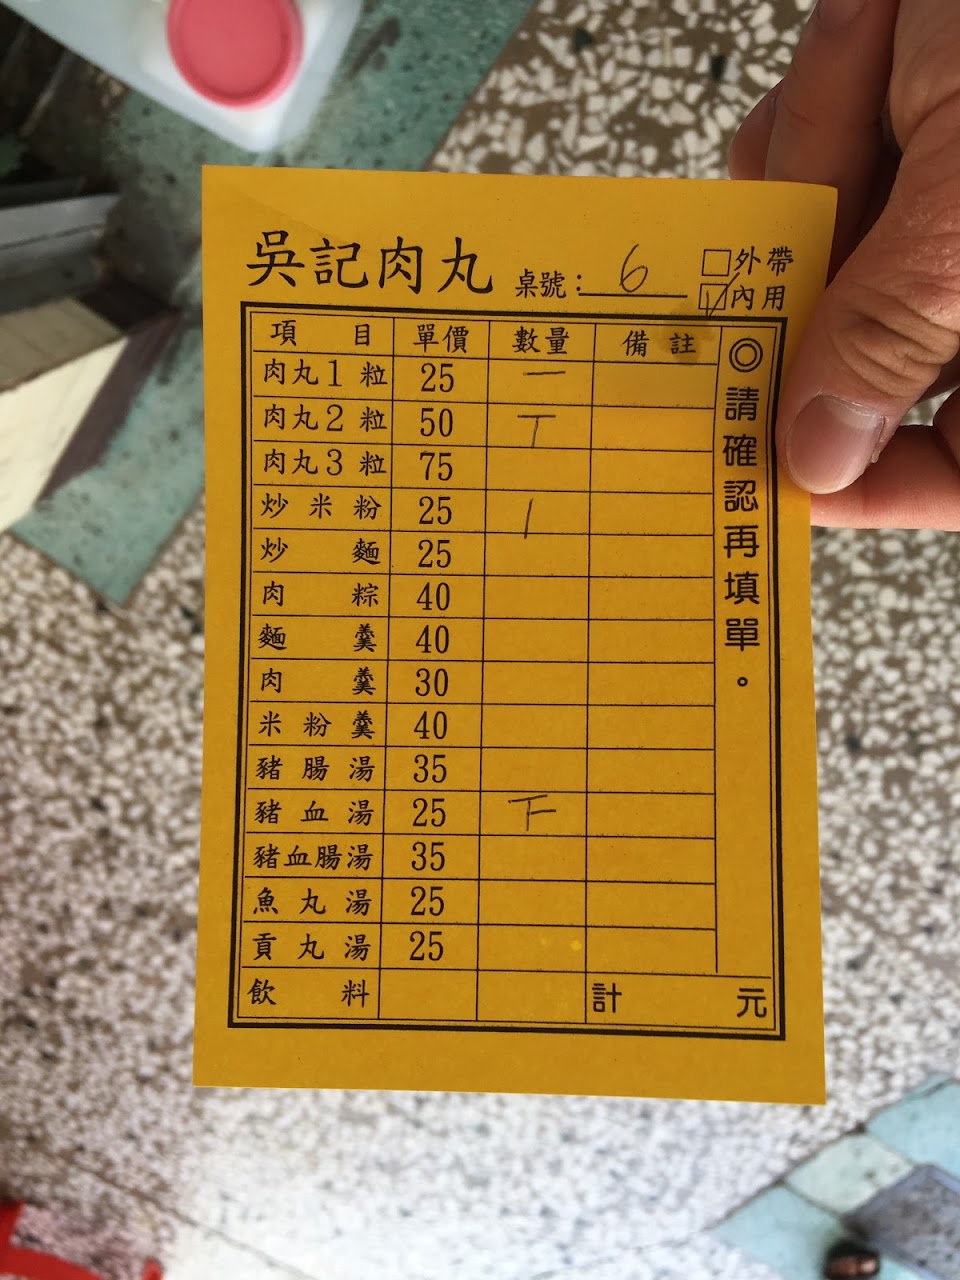 吳記肉丸 桌號：6 □外帶
☑內用
項目 單價 數量 備註
肉丸1粒 25 一
肉丸2粒 50 T
肉丸3粒 75
炒米粉 25 |
炒麵 25
肉粽 40
麵羹 40
肉羹 30
米粉羹 40
豬腸湯 35
豬血湯 25 下
豬血腸湯 35
魚丸湯 25
貢丸湯 25
飲料 計 元
◎請確認再填單。